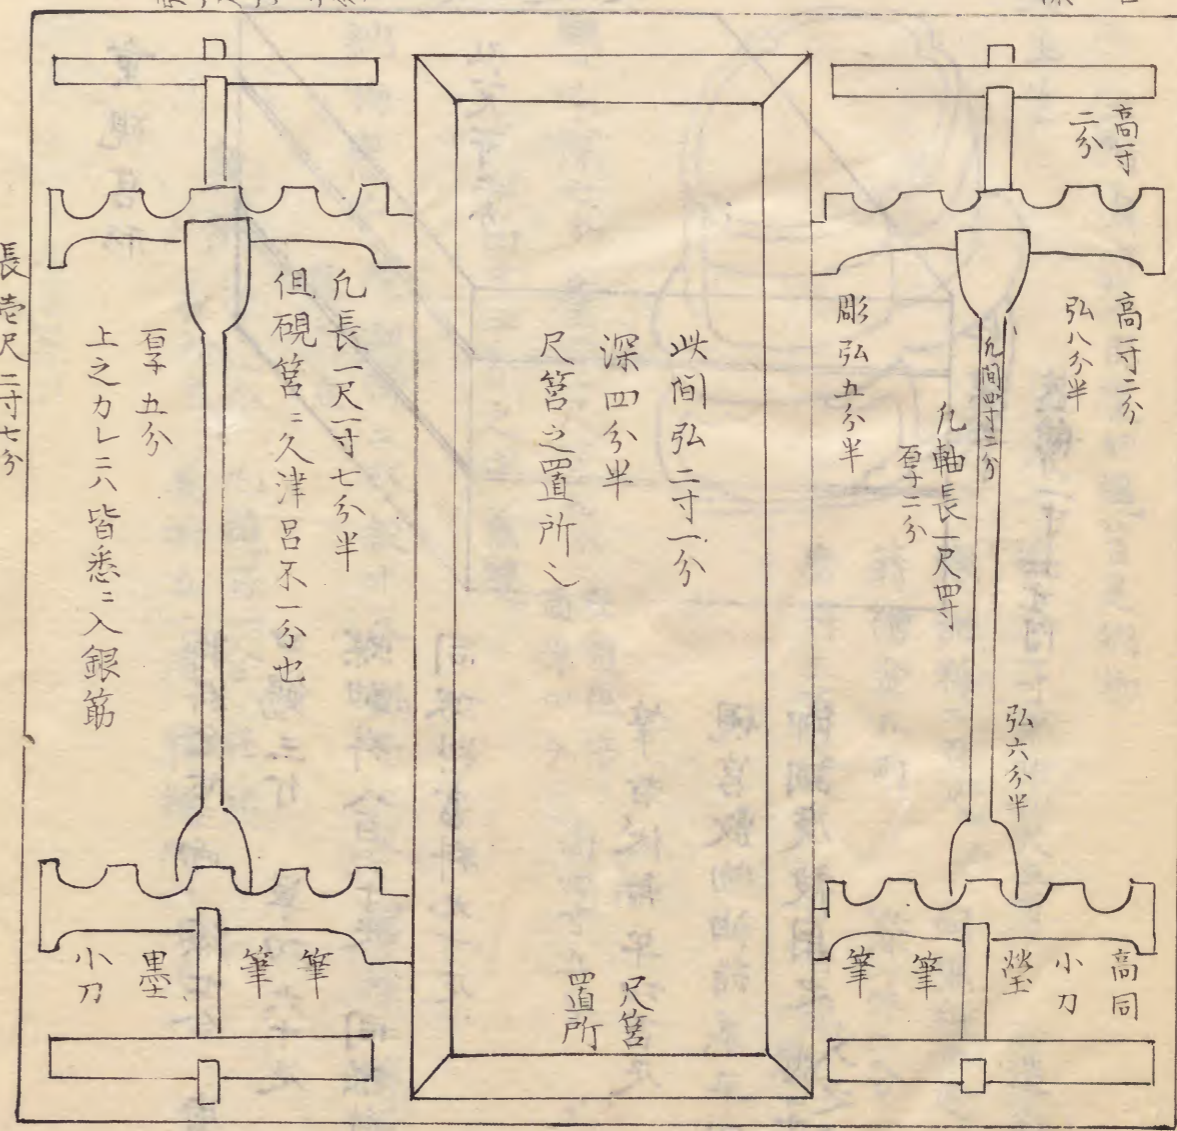 高寸
二分
高寸二分
弘八分半
凡間四寸二分
凡軸長一尺四寸
厚二分
彫弘五分半
弘六分半
高同
小刀
瑩
筆
筆
此間弘二寸一分
深四分半
尺筥之置所之
尺筥
置所
凡長一尺一寸七分半
但硯筥ニ久津呂不一分也
厚五分
上之カレニハ皆悉ニ入銀筋
筆
筆
墨
小刀
長壱尺二寸七分